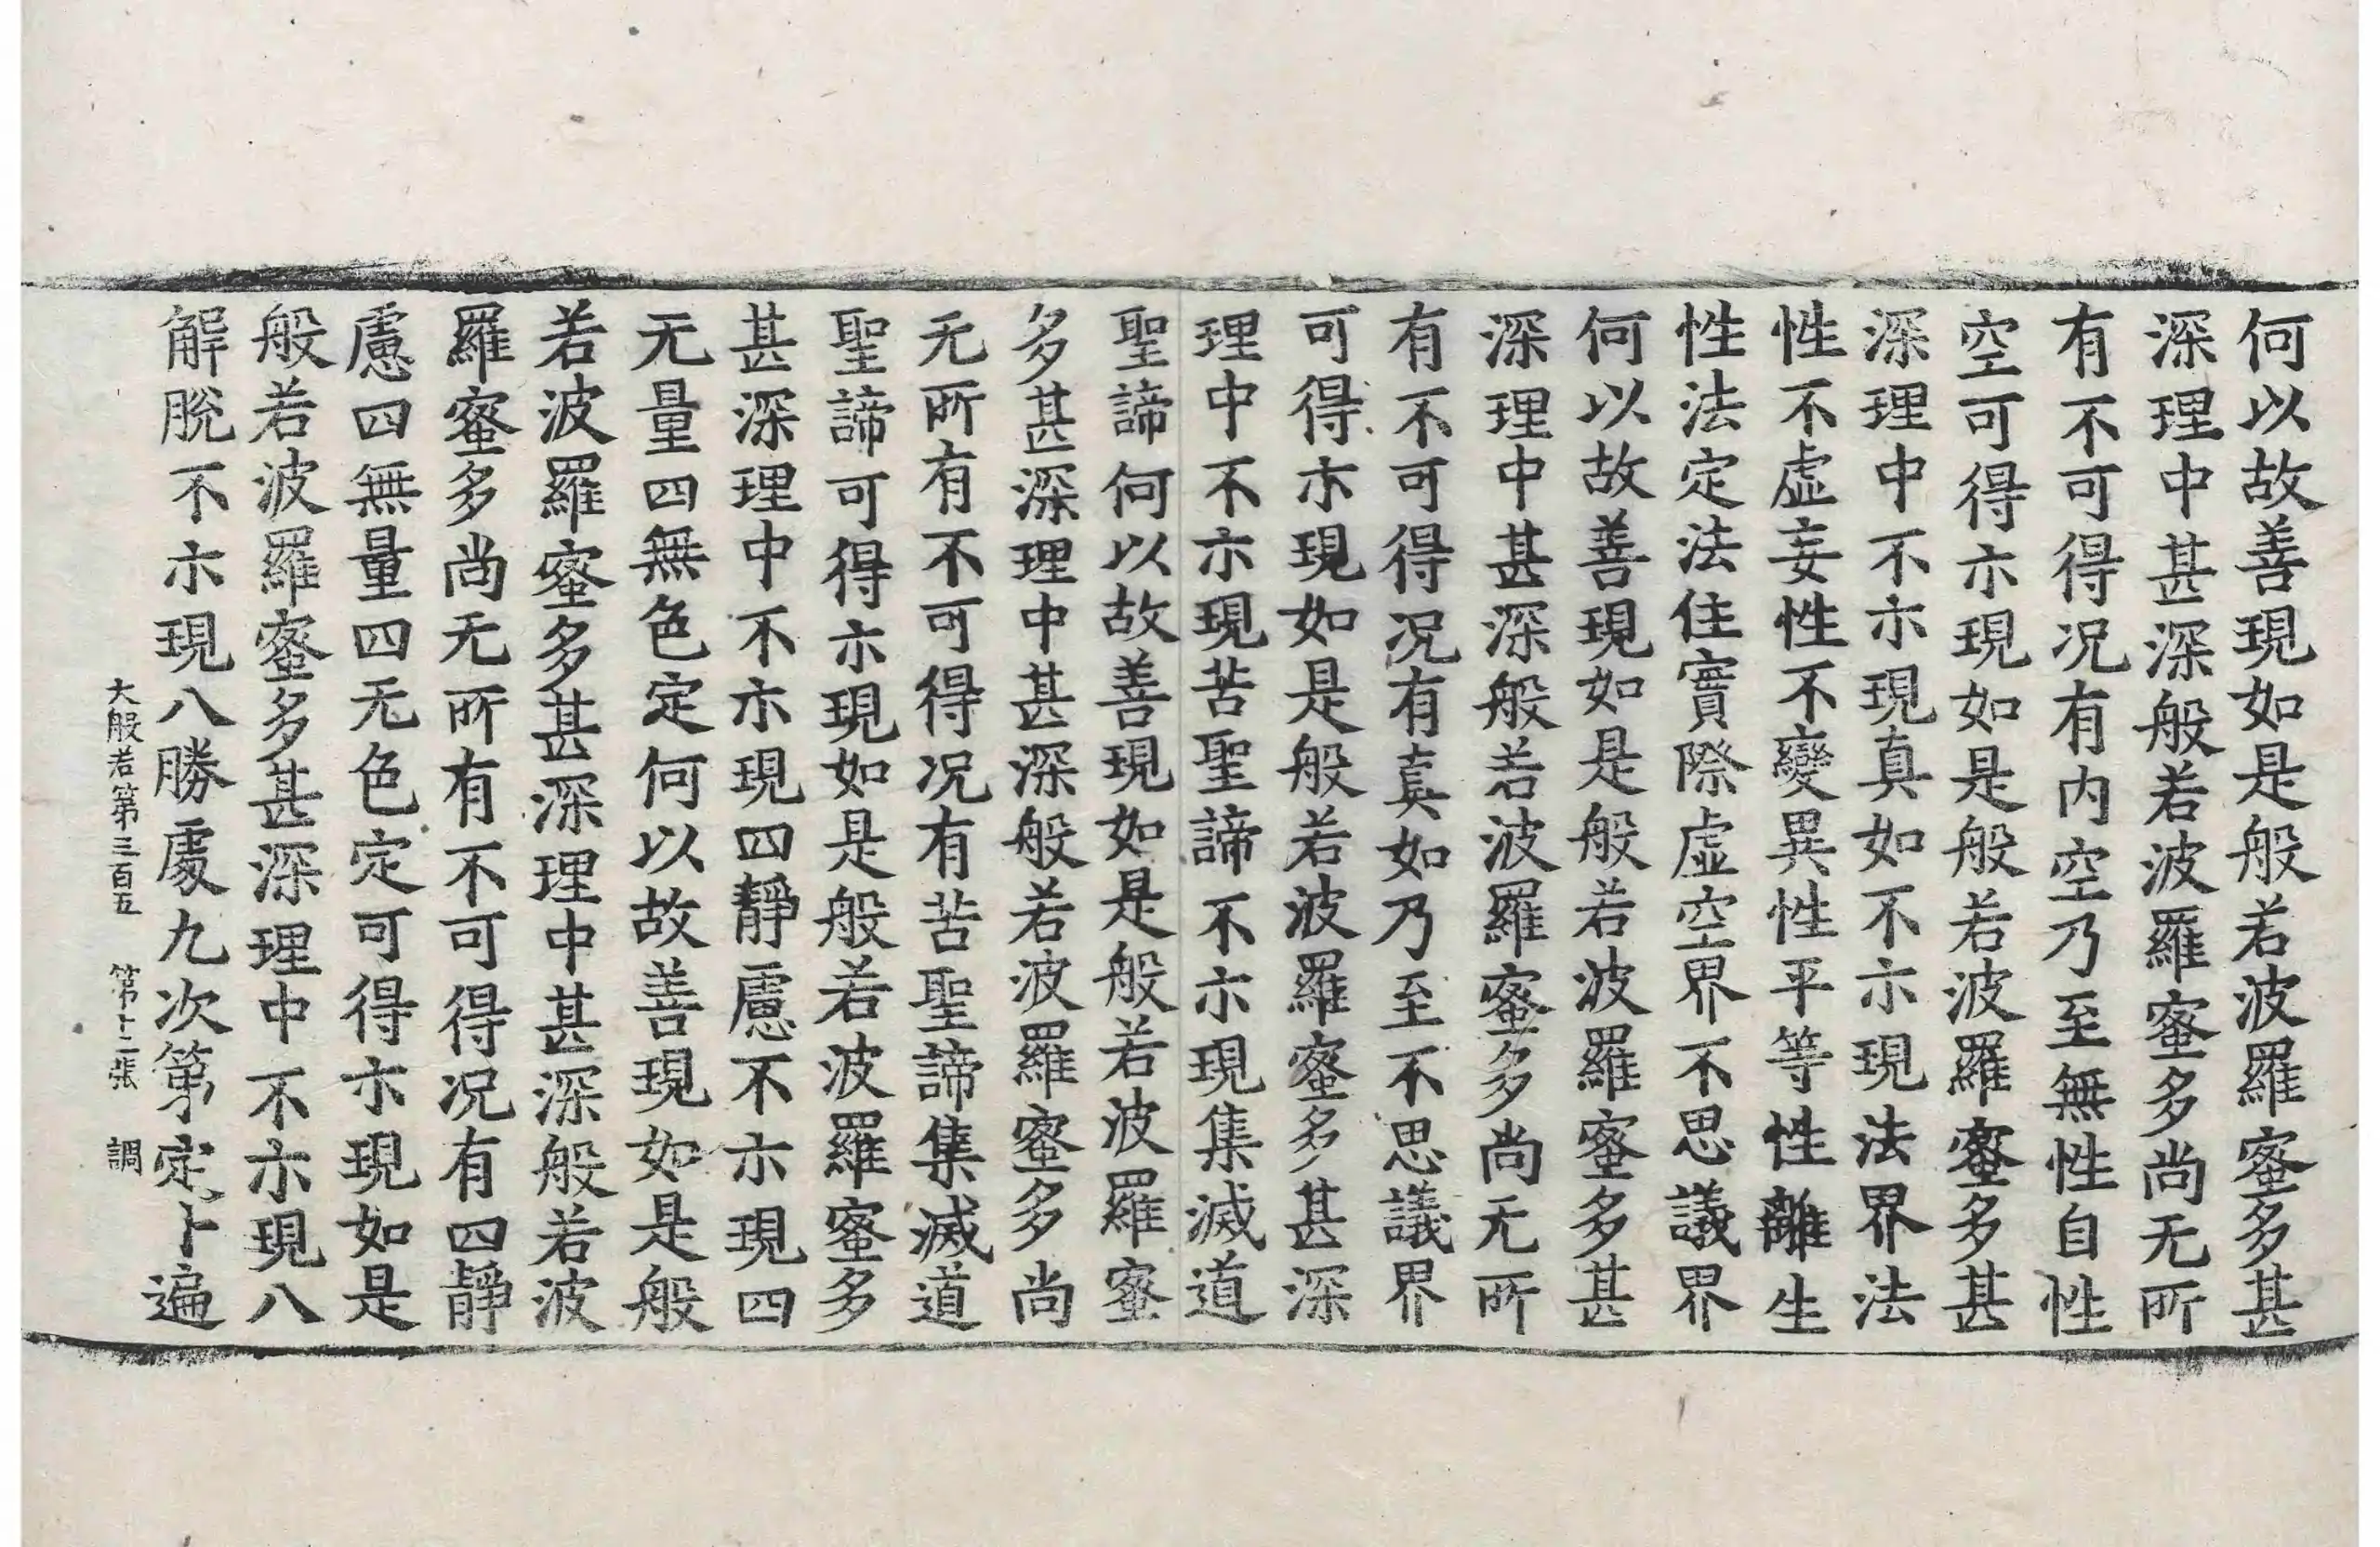 何以故善現如是般若波羅蜜多甚
深理中甚深般若波羅蜜多尚无所
有不可得况有内空乃至無性自性
空可得示現如是般若波羅蜜多甚
深理中不示現真如不示現法界法
性不虛妄性不變異性平等性離生
性法定法住實際虛空界不思議界
何以故善現如是般若波羅蜜多甚
深理中甚深般若波羅蜜多尚无所
有不可得况有真如乃至不思議界
可得示現如是般若波羅蜜多甚深
理中不示現苦聖諦不示現集滅道
聖諦何以故善現如是般若波羅蜜
多甚深理中甚深般若波羅蜜多尚
无所有不可得况有苦聖諦集滅道
聖諦可得示現如是般若波羅蜜多
甚深理中不示現四靜慮不示現四
无量四無色定何以故善現如是般
若波羅蜜多甚深理中甚深般若波
羅蜜多尚无所有不可得况有四靜
慮四無量四无色定可得示現如是
般若波羅蜜多甚深理中不示現八
解脫不示現八勝處九次第定卜遍
大般若第三百五 第十二張 調